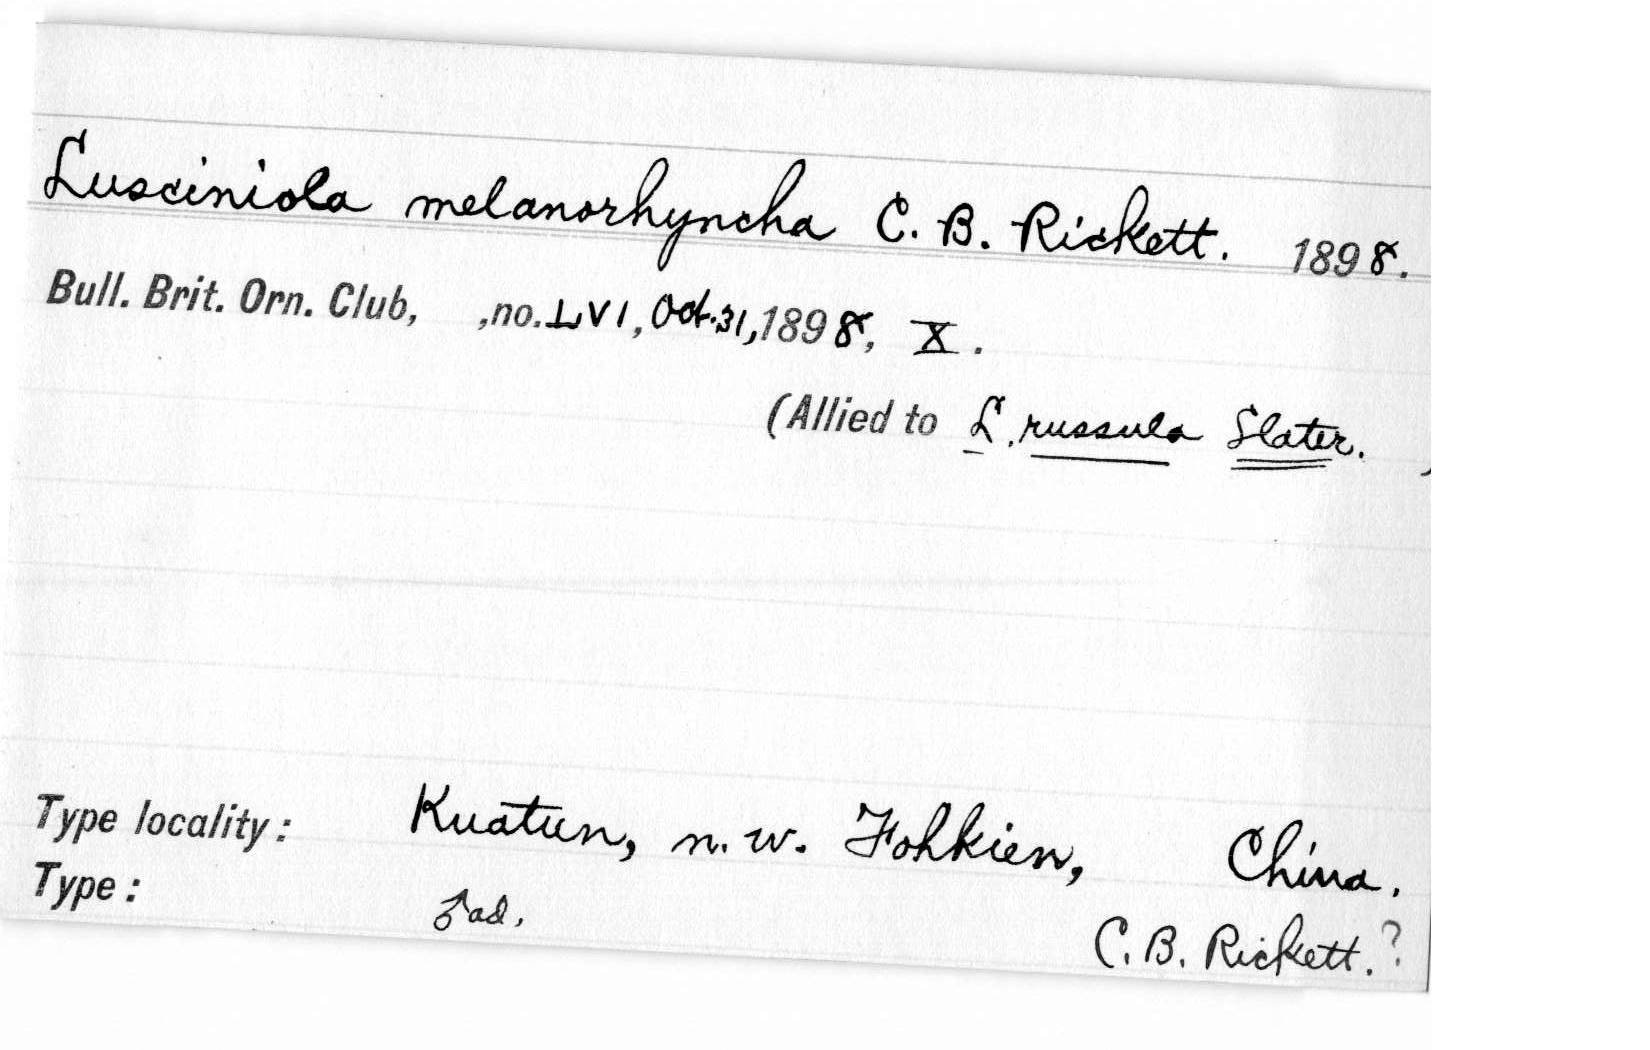 Lusciniola melanorhyncha C. B. Rickett. 1898.
Bull. Brit. Orn. Club, ,no. LVI, Oct. 31, 1898, X.
(Allied to L. russula Slater. )
Type locality: Kuatun, n. w. Fohkien, China.
Type: ♂ ad. C. B. Rickett. ?